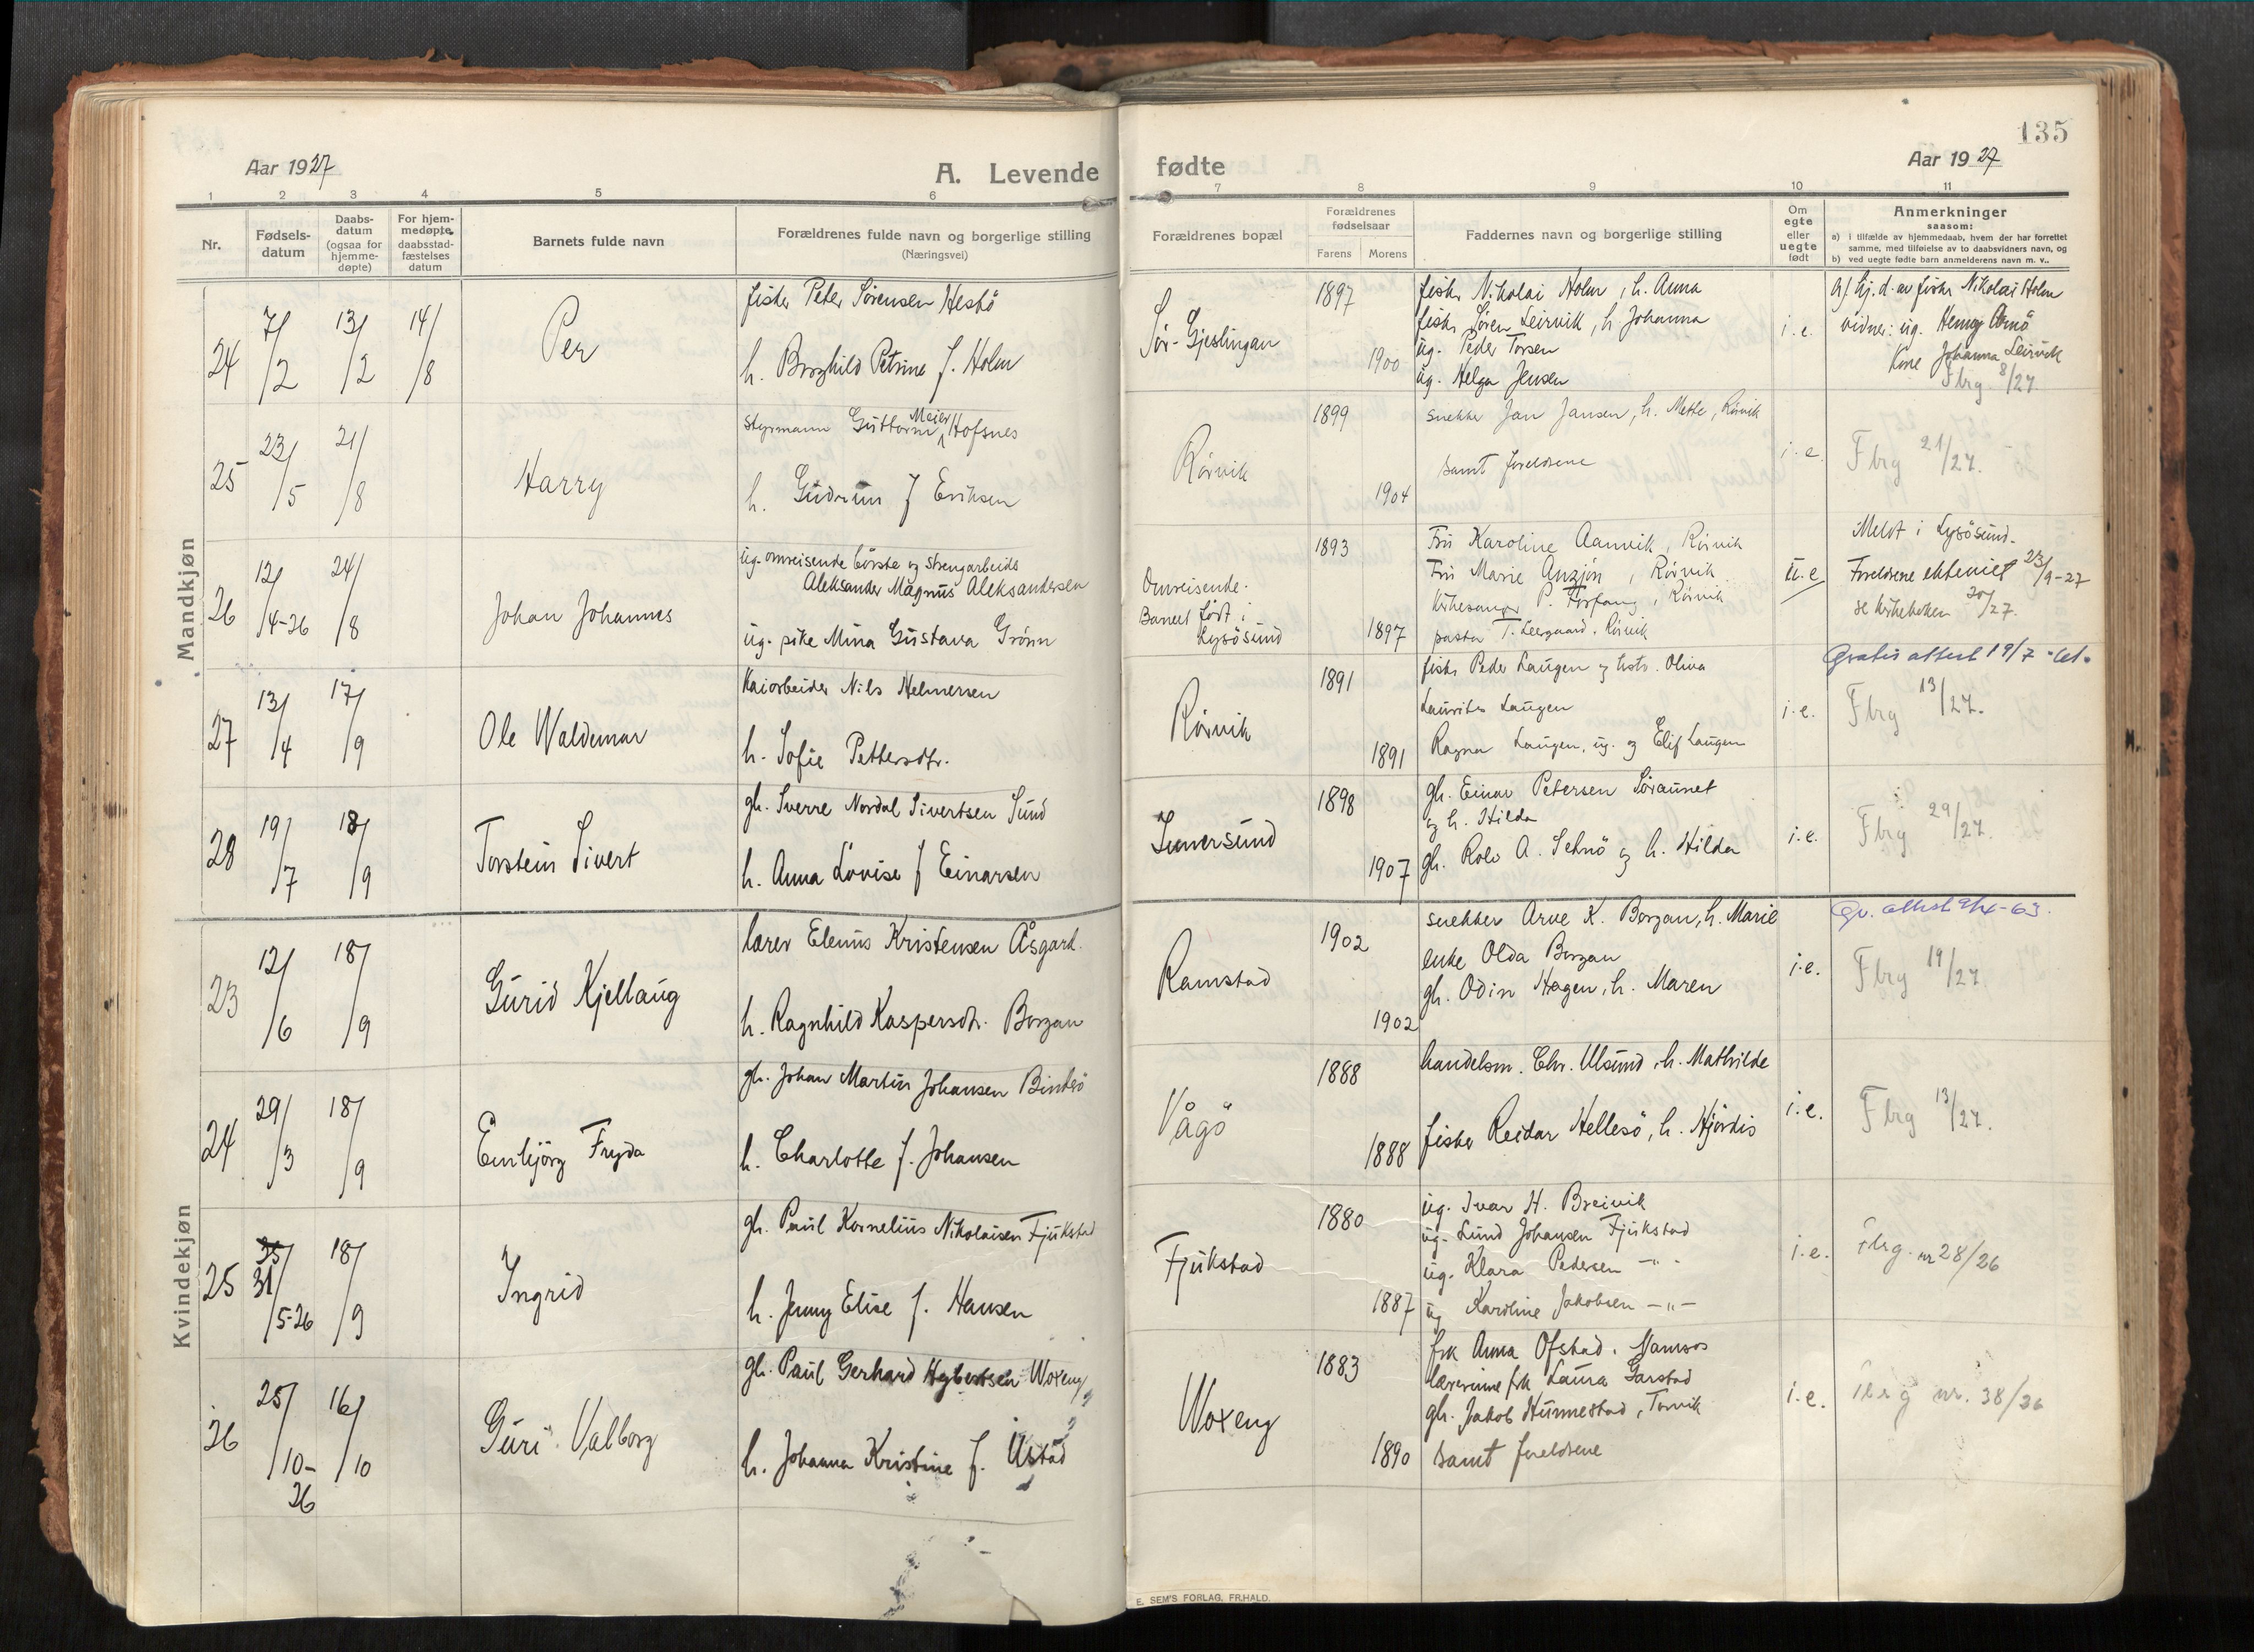 135
Aar 1927
A. Levende
fødte
Aar 1927
1 2 3 4 5 6 7 8 9 10 11
Nr.
Fødsels-
datum
Daabs-
datum
(ogsaa for
hjemme-
døpte)
For hjem-
medøpte
daabsstad-
fæstelses
datum
Barnets fulde navn
Forældrenes fulde navn og borgerlige stilling
(Næringsvei)
Forældrenes bopæl
Forældrenes
fødselsaar
Farens Morens
Faddernes navn og borgerlige stilling
Om
egte
eller
uegte
født
Anmerkninger
saasom:
a) i tilfælde av hjemmedaab, hvem der har forrettet
samme, med tilføielse av to daabsvidners navn, og
b) ved uegte fødte barn anmelderens navn m. v..
Mandkjøn
24
7/2
13/2
14/8
Per
fisker Peter Sørensen Hestö
h. Borghild Petrine f. Holm
Sør-Gjeslingan
1897
1900
fisker Nikolai Holm, h. Anna
fisker Søren Leirvik, h. Johanna
ug. Peder Torsen
ug. Helga Jensen
i.e.
a/ hj. d. av fisker Nikolai Holm
vidner: ug. Henny Arnö
Kone Johanna Leirvik
Fbrg. 8/27
25
23/5
21/8
Harry
Meier
styrmann Guttorm Hofsnes
h. Gudrun f Eriksen
Rörvik
1899
1904
snekker Jan Jansen, h. Mette, Rörvik
samt foreldrene
i.e.
Fbrg 21/27.
26
12/4-26
24/8
Johan Johannes
ug. omreisende börste og strengarbeider
Aleksander Magnus Aleksandersen
ug. pike Mina Gustava Grönn
Omreisende.
Barnet født i
Lysösund
1893
1897
Fru Karoline Aanvik, Rörvik
Fru Marie Anzjön, Rörvik
kirkesanger P. Forfang, Rörvik
pastor T. Leergaard. Rörvik
u.e
Meldt i Lysösund.
Foreldrene ekteviet 23/9-27
se kirkeboken 20/27.
Gratis attest 19/7
27
13/4
17/9
Ole Waldemar
Kaiarbeider Nils Helmersen
h. Sofie Pettersdtr.
Rörvik
1891
1891
fisker Peder Laugen og hstr. Oliva
Laurits Laugen
Ragna Laugen, ug. og Elif Laugen
i.e.
Fbrg 13/27.
28
19/7
18/9
Torstein Sivert
gh. Sverre Nordal Sivertsen Sund
h. Anna Lovise f Einarsen
1898
1907
gh. Einar Petersen Söraunet
og h. Hilda
gh. Rolv A. Setnö og h. Hilda
i.e.
Fbrg 29/27.
Kvindekjøn
23
12/6
18/9
Gurid Kjellaug
lærer Elenus Kristensen Åsgard.
h. Ragnhild Kaspersdtr. Borgan
Ramstad
1902
1902
snekker Arve K. Borgan, h. Marie
enke Olda Borgan
gh. Odin Hagen, h. Maren
i.e.
Gr. attest 9/4-63.
Fbrg 19/27
24
29/3
18/9
Embjörg Fryda
gh. Johan Martin Johansen
h. Charlotte f. Johansen
Vågö
1888
1888
handelsm. Chr. Ulsund, h. Mathilde
fisker Reidar Hellesö, h. Hjördis
i.e.
Fbrg 13/27.
25
31/5-26
18/9
Ingrid
gh. Paul Kornelius Nikolaisen Fjukstad
h. Jenny Elise f. Hansen
Fjukstad
1880
1887
ug. Ivar H. Breivik
ug. Lund Johansen Fjukstad
ug. Klara Pedersen -"-
ug Karoline Jakobsen -"-
i.e.
Fbrg. nr 28/26
26
25/10-26
16/10
Guri Valborg
gh. Paul Gerhard Hybertsen Woxeng
h. Johanna Kristine f. Ustad
Woxeng
1883
1890
frk Anna Ofstad. Namsos
lærerinne frk Laura Garstad
gh. Jakob Hunnestad, Torvik
samt foreldrene
i.e.
Fbrg nr. 38/26
E. SEM'S FORLAG, FR.HALD.